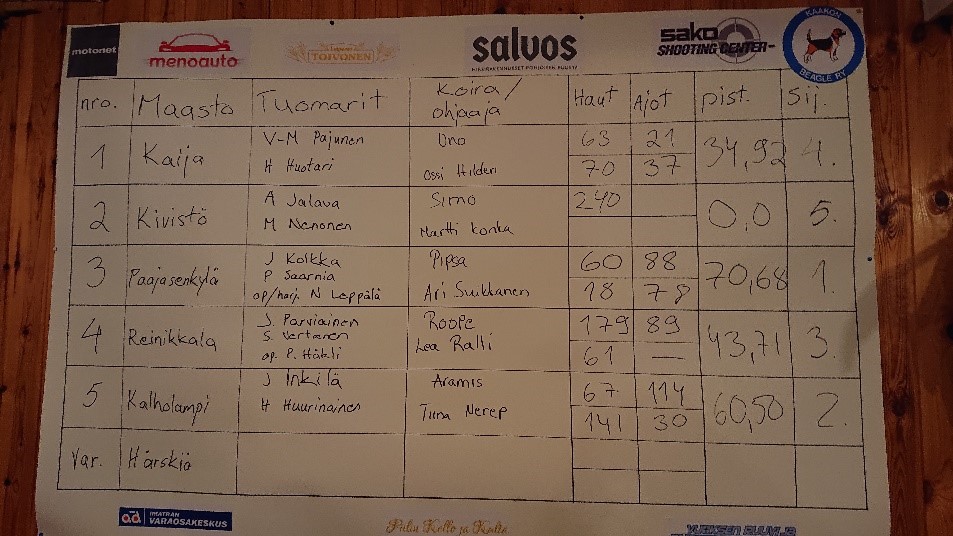 motonet
menoauto
TOIVONEN
salvos
sako
SHOOTING CENTER
KAAKON
BEAGLE RY
nro. Maasto Tuomarit Koira/ohjaaja Haut Ajot pist. Sij.
1 Kaija V-M Pajunen Uno 63 21 34,92 4.
H Huotari Ossi Hilden 70 37
2 Kivistö A Jalava Simo 240 0,0 5.
M Nenonen Martti Konka
3 Paajasenkylä J Kolkka Pipsa 60 88 70,68 1.
P Saarnia
op/harj. N Leppälä Ari Suikkanen 18 78
4 Reinikkala J. Parviainen Roope 179 89 43,71 3.
S. Vertanen Lea Ralli
op. P. Häkli 61 —
5 Kalholampi J Inkilä Aramis 67 114 60,50 2.
H Huurinainen Tiina Nerep 141 30
Var. Härskiä
ad IMATRAN
VARAOSAKESKUS
Pulin Kello ja Kulta